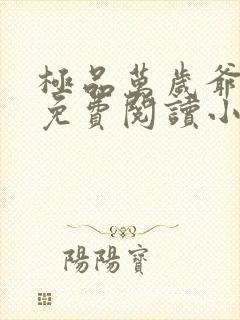 極品萬歲爺
免費閱讀小
陽陽寶